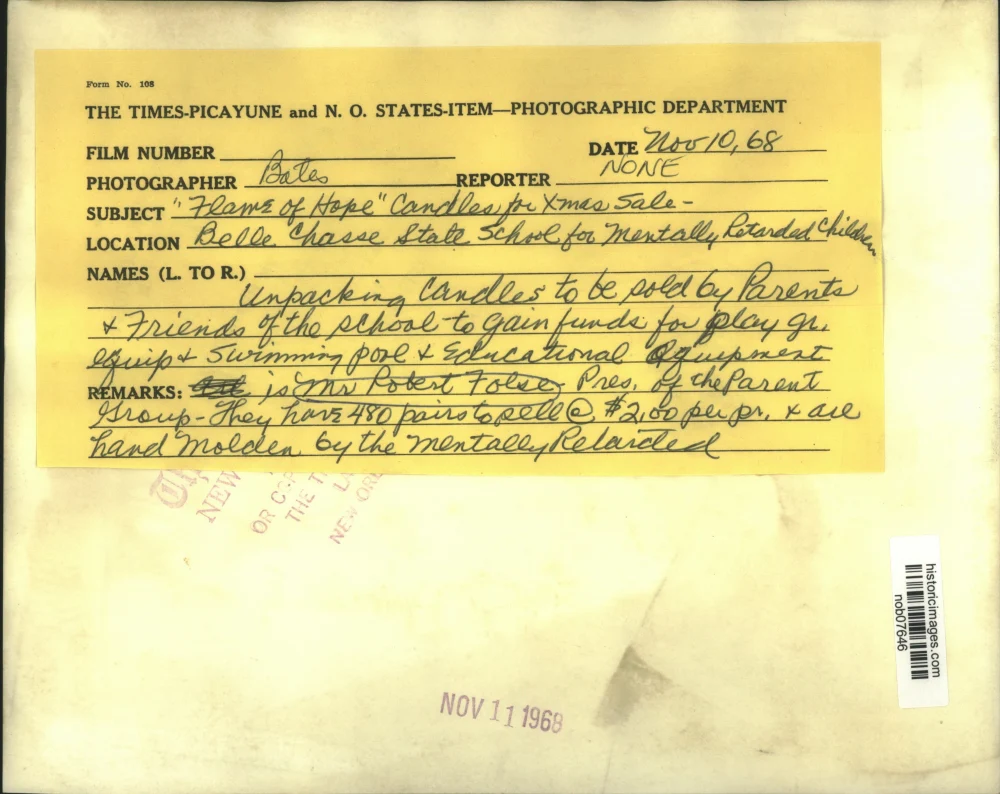 Form No. 108
THE TIMES-PICAYUNE and N. O. STATES-ITEM—PHOTOGRAPHIC DEPARTMENT
FILM NUMBER
DATE Nov 10, 68
PHOTOGRAPHER Bates REPORTER NONE
SUBJECT "Flame of Hope" Candles for Xmas Sale -
LOCATION Belle Chasse State School for Mentally Retarded Children
NAMES (L. TO R.)
Unpacking Candles to be sold by Parents
& Friends of the school to gain funds for play gr.
equip & Swimming pool & Educational Equipment
REMARKS: is Mr Robert Folse, Pres. of the Parent
Group - They have 480 pairs to sell @ $2.00 per pr. & are
hand Molden by the Mentally Retarded
NEW
OR
THE T
NEW ORL
NOV 11 1968
historicimages.com
nob07646